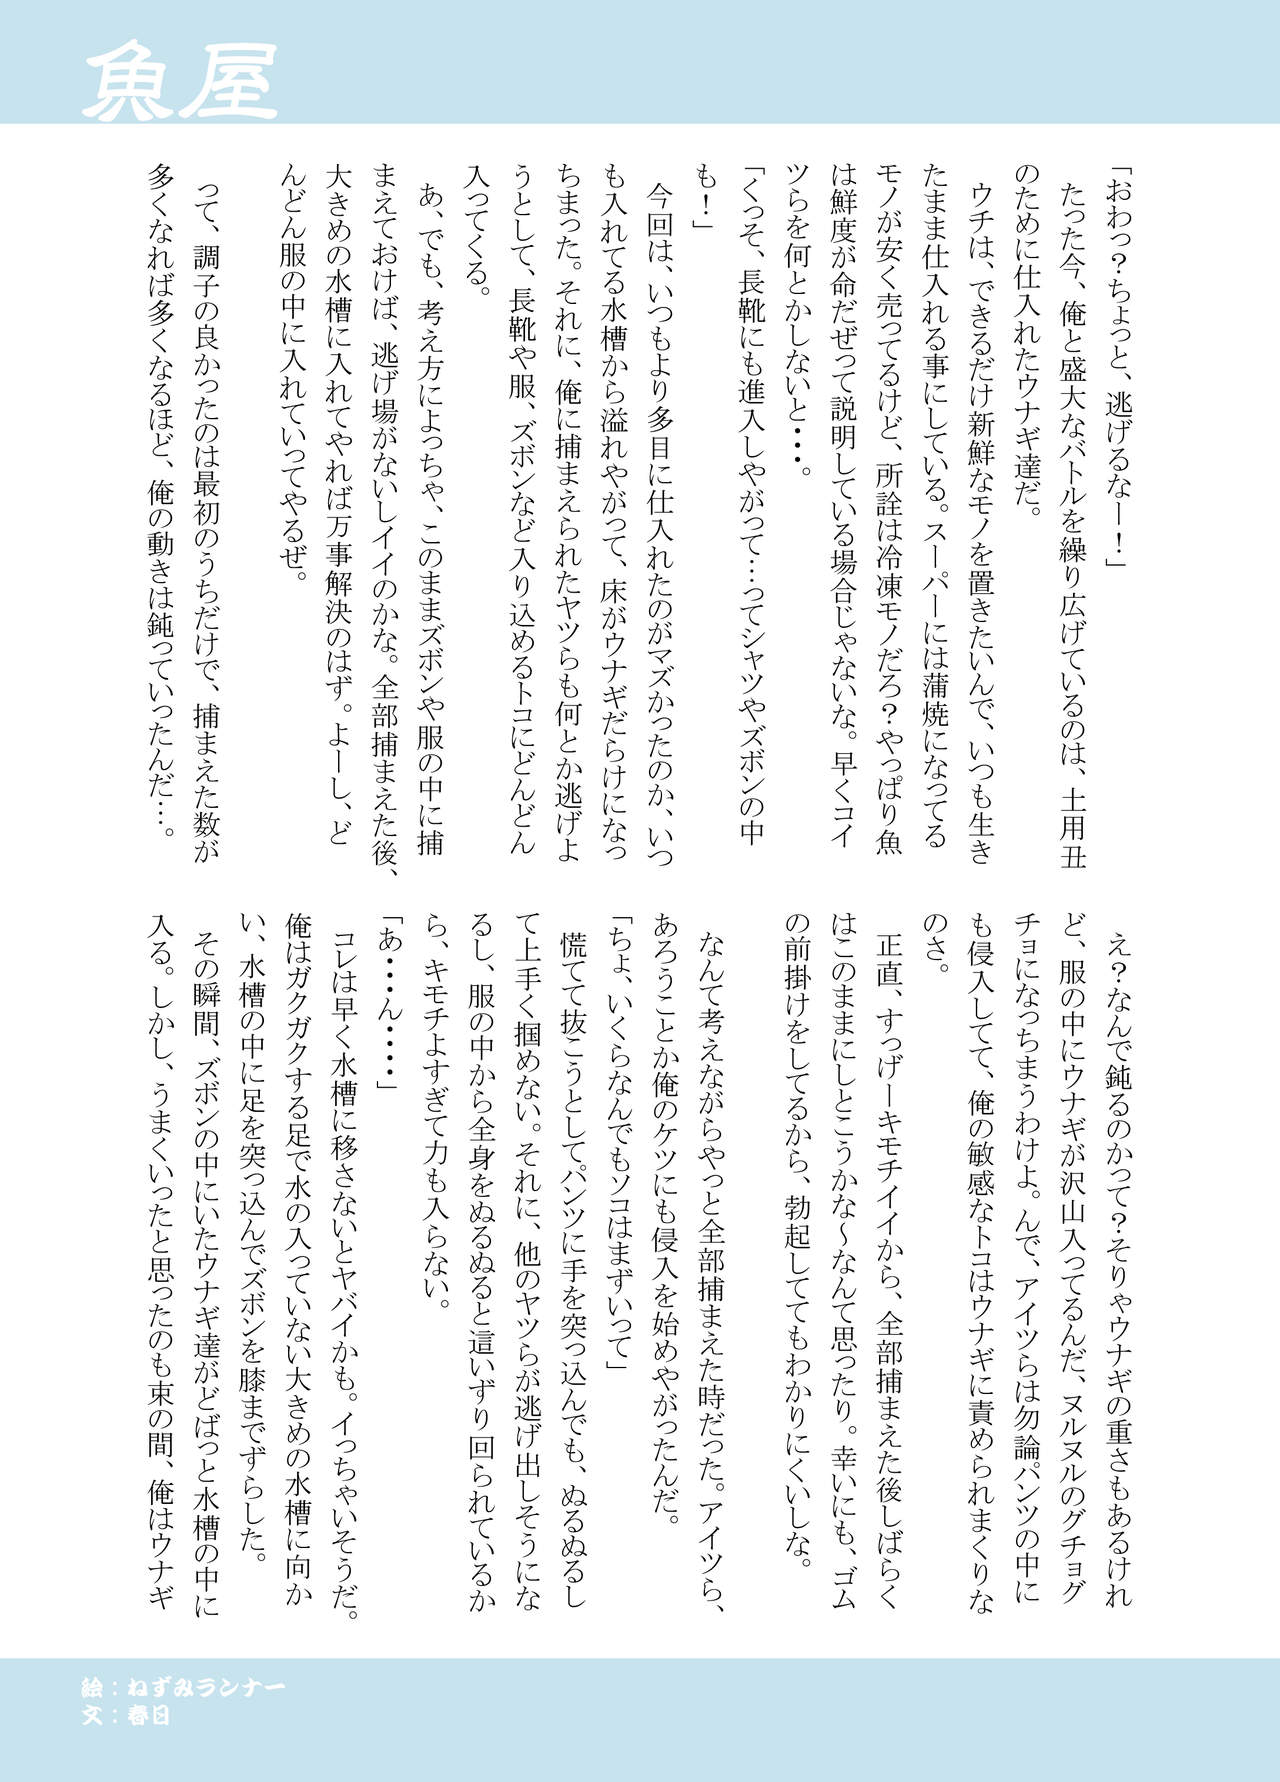 魚屋
「おわっ?ちょっと、逃げるなー!」
たった今、俺と盛大なバトルを繰り広げているのは、土用丑
のために仕入れたウナギ達だ。
ウチは、できるだけ新鮮なモノを置きたいんで、いつも生き
たまま仕入れる事にしている。スーパーには蒲焼になってる
モノが安く売ってるけど、所詮は冷凍モノだろ?やっぱり魚
は鮮度が命だぜって説明している場合じゃないな。早くコイ
ツらを何とかしないと・・・。
「くっそ、長靴にも進入しやがって…ってシャツやズボンの中
も!」
今回は、いつもより多目に仕入れたのがマズかったのか、いつ
も入れてる水槽から溢れやがって、床がウナギだらけになっ
ちまった。それに、俺に捕まえられたヤツらも何とか逃げよ
うとして、長靴や服、ズボンなど入り込めるトコにどんどん
入ってくる。
あ、でも、考え方によっちゃ、このままズボンや服の中に捕
まえておけば、逃げ場がないしイイのかな。全部捕まえた後、
大きめの水槽に入れてやれば万事解決のはず。よーし、ど
んどん服の中に入れていってやるぜ。
って、調子の良かったのは最初のうちだけで、捕まえた数が
多くなれば多くなるほど、俺の動きは鈍っていったんだ…。
え?なんで鈍るのかって?そりゃウナギの重さもあるけれ
ど、服の中にウナギが沢山入ってるんだ、ヌルヌルのグチョグ
チョになっちまうわけよ。んで、アイツらは勿論パンツの中に
も侵入してて、俺の敏感なトコはウナギに責められまくりな
のさ。
正直、すっげーキモチイイから、全部捕まえた後しばらく
はこのままにしとこうかな〜なんて思ったり。幸いにも、ゴム
の前掛けをしてるから、勃起しててもわかりにくいしな。
なんて考えながらやっと全部捕まえた時だった。アイツら、
あろうことか俺のケツにも侵入を始めやがったんだ。
「ちょ、いくらなんでもソコはまずいって」
慌てて抜こうとしてパンツに手を突っ込んでも、ぬるぬるし
て上手く掴めない。それに、他のヤツらが逃げ出しそうにな
るし、服の中から全身をぬるぬると這いずり回られているか
ら、キモチよすぎて力も入らない。
「あ・・・ん・・・・」
コレは早く水槽に移さないとヤバイかも。イっちゃいそうだ。
俺はガクガクする足で水の入っていない大きめの水槽に向か
い、水槽の中に足を突っ込んでズボンを膝までずらした。
その瞬間、ズボンの中にいたウナギ達がどばっと水槽の中に
入る。しかし、うまくいったと思ったのも束の間、俺はウナギ
絵:ねずみランナー
文:春日